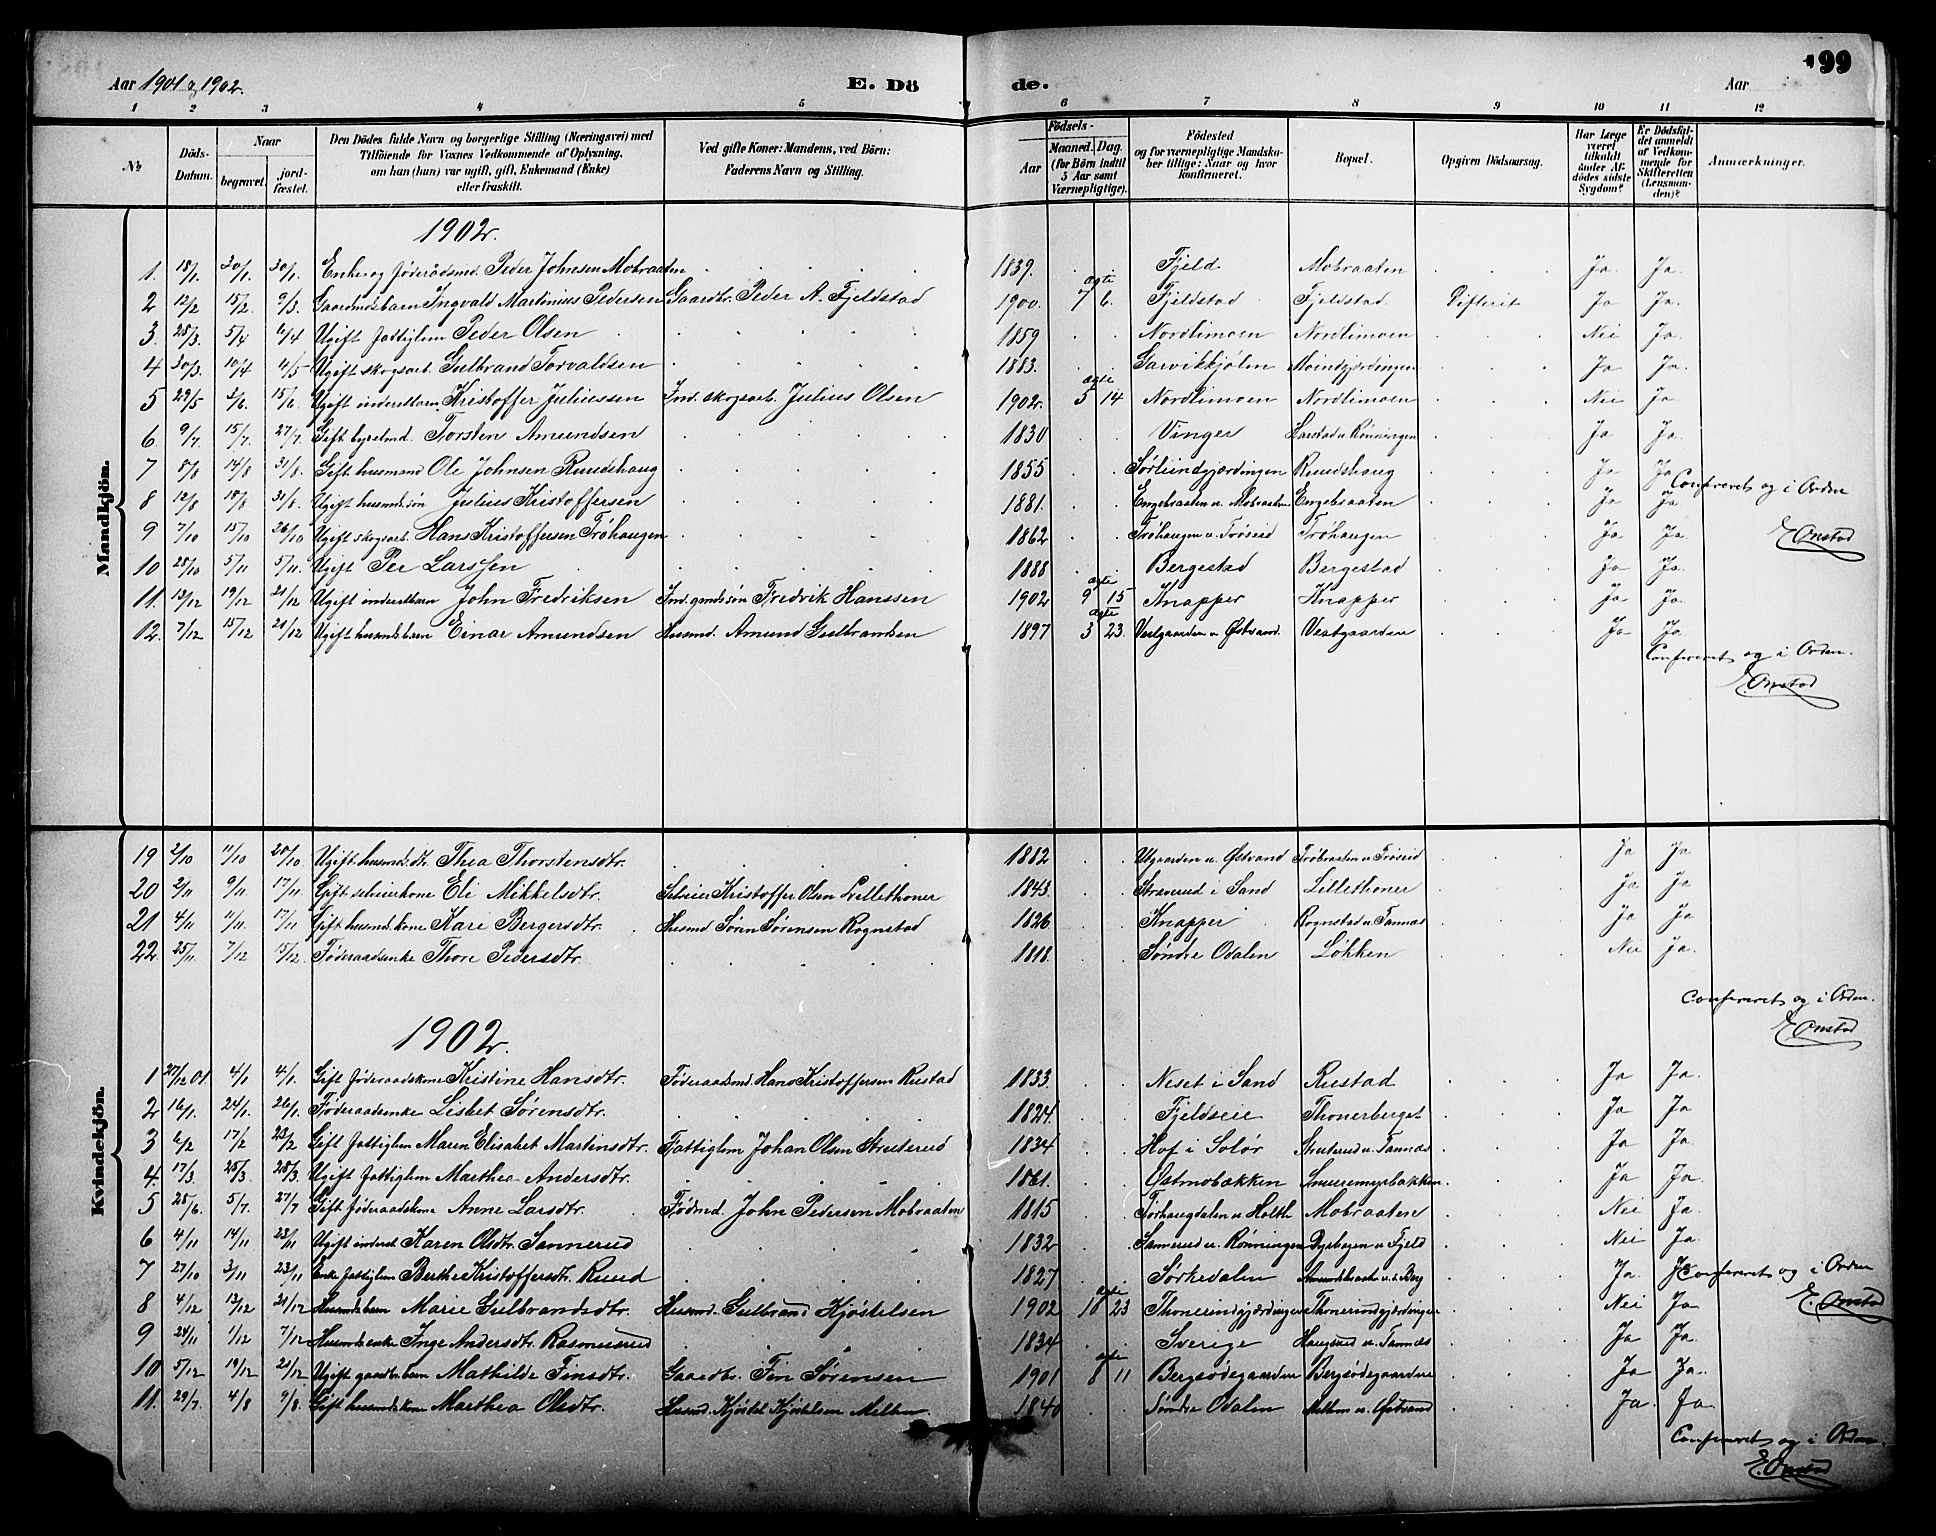 Aar 1901 og 1902.
E. Dö de.
Aar
199
1 2 3 4 5 6 7 8 9 10 11 12
No
Döds-Datum.
Naar begravet. jordfæstet.
Den Dödes fulde Navn og borgerlige Stilling (Næringsvei) med Tilföiende for Voxnes Vedkommende af Oplysning, om han (hun) var ugift, gift, Enkemand (Enke) eller fraskilt.
Ved gifte Koner: Mandens, ved Börn: Faderens Navn og Stilling.
Födsels-
Aar Maaned. Dag. (for Börn indtil 5 Aar samt Værnepligtige).
Födested og for værnepligtige Mandskaber tillige: Naar og hvor konfirmeret.
Bopæl.
Opgiven Dödsaarsag.
Har Læge været tilkaldt under Afdödes sidste Sygdom?
Er Dödsfaldet anmeldt af Vedkommende for Skifteretten (Lensmanden)?
Anmærkninger.
Mandkjön.
1902.
1. 18/1. 20/1. 30/1. Enke og Föderådsmd. Peder Johnsen Mobraaten 1839. Fjeld Mobraaten Ja Ja
2 12/2 15/2. 9/3. Gaardmdsbarn Ingvald Martinius Pedersen Gaardbr. Peder A. Fjeldstad 1900. ægte 7 6. Fjeldstad Fjeldstad. Difterit Ja Ja
3. 28/3. 5/4 6/4 Ugift fattiglem Peder Olsen 1859 Nordlimoen Nordlimoen Nei Ja
4 30/3. 10/4 11/5 Ugift skogsarb. Gulbrand Torvaldsen 1883. Garvikkjölen Moindgjærdingen Ja Ja.
5 29/5 2/6. 15/6. Ugift inderstbarn Kristoffer Juliussen Ind. skogsarb. Julius Olsen 1902. ægte 5 14 Nordlimoen Nordlimoen Nei Ja
6. 9/7. 15/7. 27/7. Gift bygselmd. Torsten Amundsen 1830 Vinger Larstad u. Rönningen Ja Ja
7 8/8 14/8 31/8. Gift husmand Ole Johnsen Rundshaug 1855 Sörliindgjærdingen Rundshaug Ja Ja
8 12/8 18/8 31/8. Ugift husmdssön Julius Kristoffersen 1881. Engebraaten u. Mobraaten Engebraaten Ja Ja
Confereret og i Orden
9 7/10 15/10 26/10 Ugift skogsarb. Hans Kristoffersen Tröhaugen 1862 Tröhaugen u. Tröseid Tröhaugen Ja Ja.
E Onstad
10 28/10 5/11 5/11. Ugift Per Larssen 1888 Bergestad Bergestad Ja Ja
11. 13/12 19/12 21/12 Ugift inderstbarn John Fredriksen Ind. gmdssön Fredrik Hanssen 1902 ægte 9 15 Knapper Knapper Ja Ja.
12. 7/12 15/12 21/12 Ugift husmdsbarn Einar Amundsen Husmd. Amund Gulbrandsen 1897 ægte 3 23. Vestgaarden u. Östvand. Vestgaarden Ja Ja.
Confereret og i Orden.
E. Onstad
Kvindekjön.
19 2/10 11/10 20/10. Ugift husmd.dtr. Thea Thorstensdtr. 1882 Utgaarden u. Östvand Tröbraaten u Tröseid Ja Ja
20 2/11 9/11 17/11 Gift selveierkone Eli Mikkelsdtr. Selveier Kristoffer Olsen Lillethoner 1843. i Sand Lillethoner Ja Ja
21 4/11 11/11. 17/11 Gift husmd.kone Kari Bergersdtr. Husmd Sören Sörensen Rognstad 1826. Knapper Rognstad u Tannæs Ja Ja
22. 25/11. 7/12 15/12. Föderaadsenke Thore Pedersdtr. 1818. Söndre Odalen Lökken Nei Ja.
Confereret og i Orden.
E Onstad
1902.
1 27/12 01. 4/1 4/1. Gift föderaadskone Kristine Hansdtr. Föderaadsmd. Hans Kristoffersen Rustad 1833. Neset i Sand Rustad Ja Ja.
2 16/1. 24/1. 26/1. Föderaadsenke Lisbet Sörensdtr. 1824. Fjeldseie Thonerberget Ja Ja.
3 6/2 17/2 23/2 Gift fattiglem Maren Elisabet Martinsdtr. Fattiglem Johan Olsen Struterud 1834 Hof i Solör Struterud u. Tannæs Ja Ja.
4. 17/3 25/3. 28/3. Ugift fattiglem Marthea Andersdtr. 1861. Östmobækken Smuremyrbakken Ja Ja.
5 28/6. 5/7. 27/7 Gift föderaadskone Anne Larsdtr. Födmd. John Pedersen Mobraaten 1815 Törhaugdalen u Holth Mobraaten Nei Ja.
6 4/11 14/11 23/11 Ugift inderst Karen Olsdtr. Sannerud 1832 Sannerud u. Rönningen Dyrhagen u Fjeld Nei Ja
7 27/10 3/11 23/11 Enke fattiglem Berthe Kristoffersdtr. Ruud 1827 Sörkedalen Berg Ja. Ja
Confereret og i Orden
8 4/12 13/12 21/12 Husmdsbarn Marie Gulbrandsdtr. Husmd. Gulbrand Kjöstelsen 1902 ægte 10 23 Thonerindgjærdingen Thonerindgjærdingen Nei Ja
E. Onstad
9 24/11 1/12 7/12 Husmdsenke Inge Andersdtr. Rasmusrud 1834 Sverige Haugsrud u Tannæs Ja Ja.
10 5/12 19/12 21/12 Ugift gaardbr.barn Mathilde Finsdtr. Gaardbr. Fin Sörensen 1901 ægte 8 11 Bergsödegaarden Bergsödegaarden Ja Ja.
11. 29/7. 4/8 9/8. Gift husmdskone Marthea Olsdtr. Husmd. Kjöstel Kjöstelsen Melbun 1840 Söndre Odalen Melbun u. Östvand Ja. Ja.
Confereret og i Orden.
E. Onstad